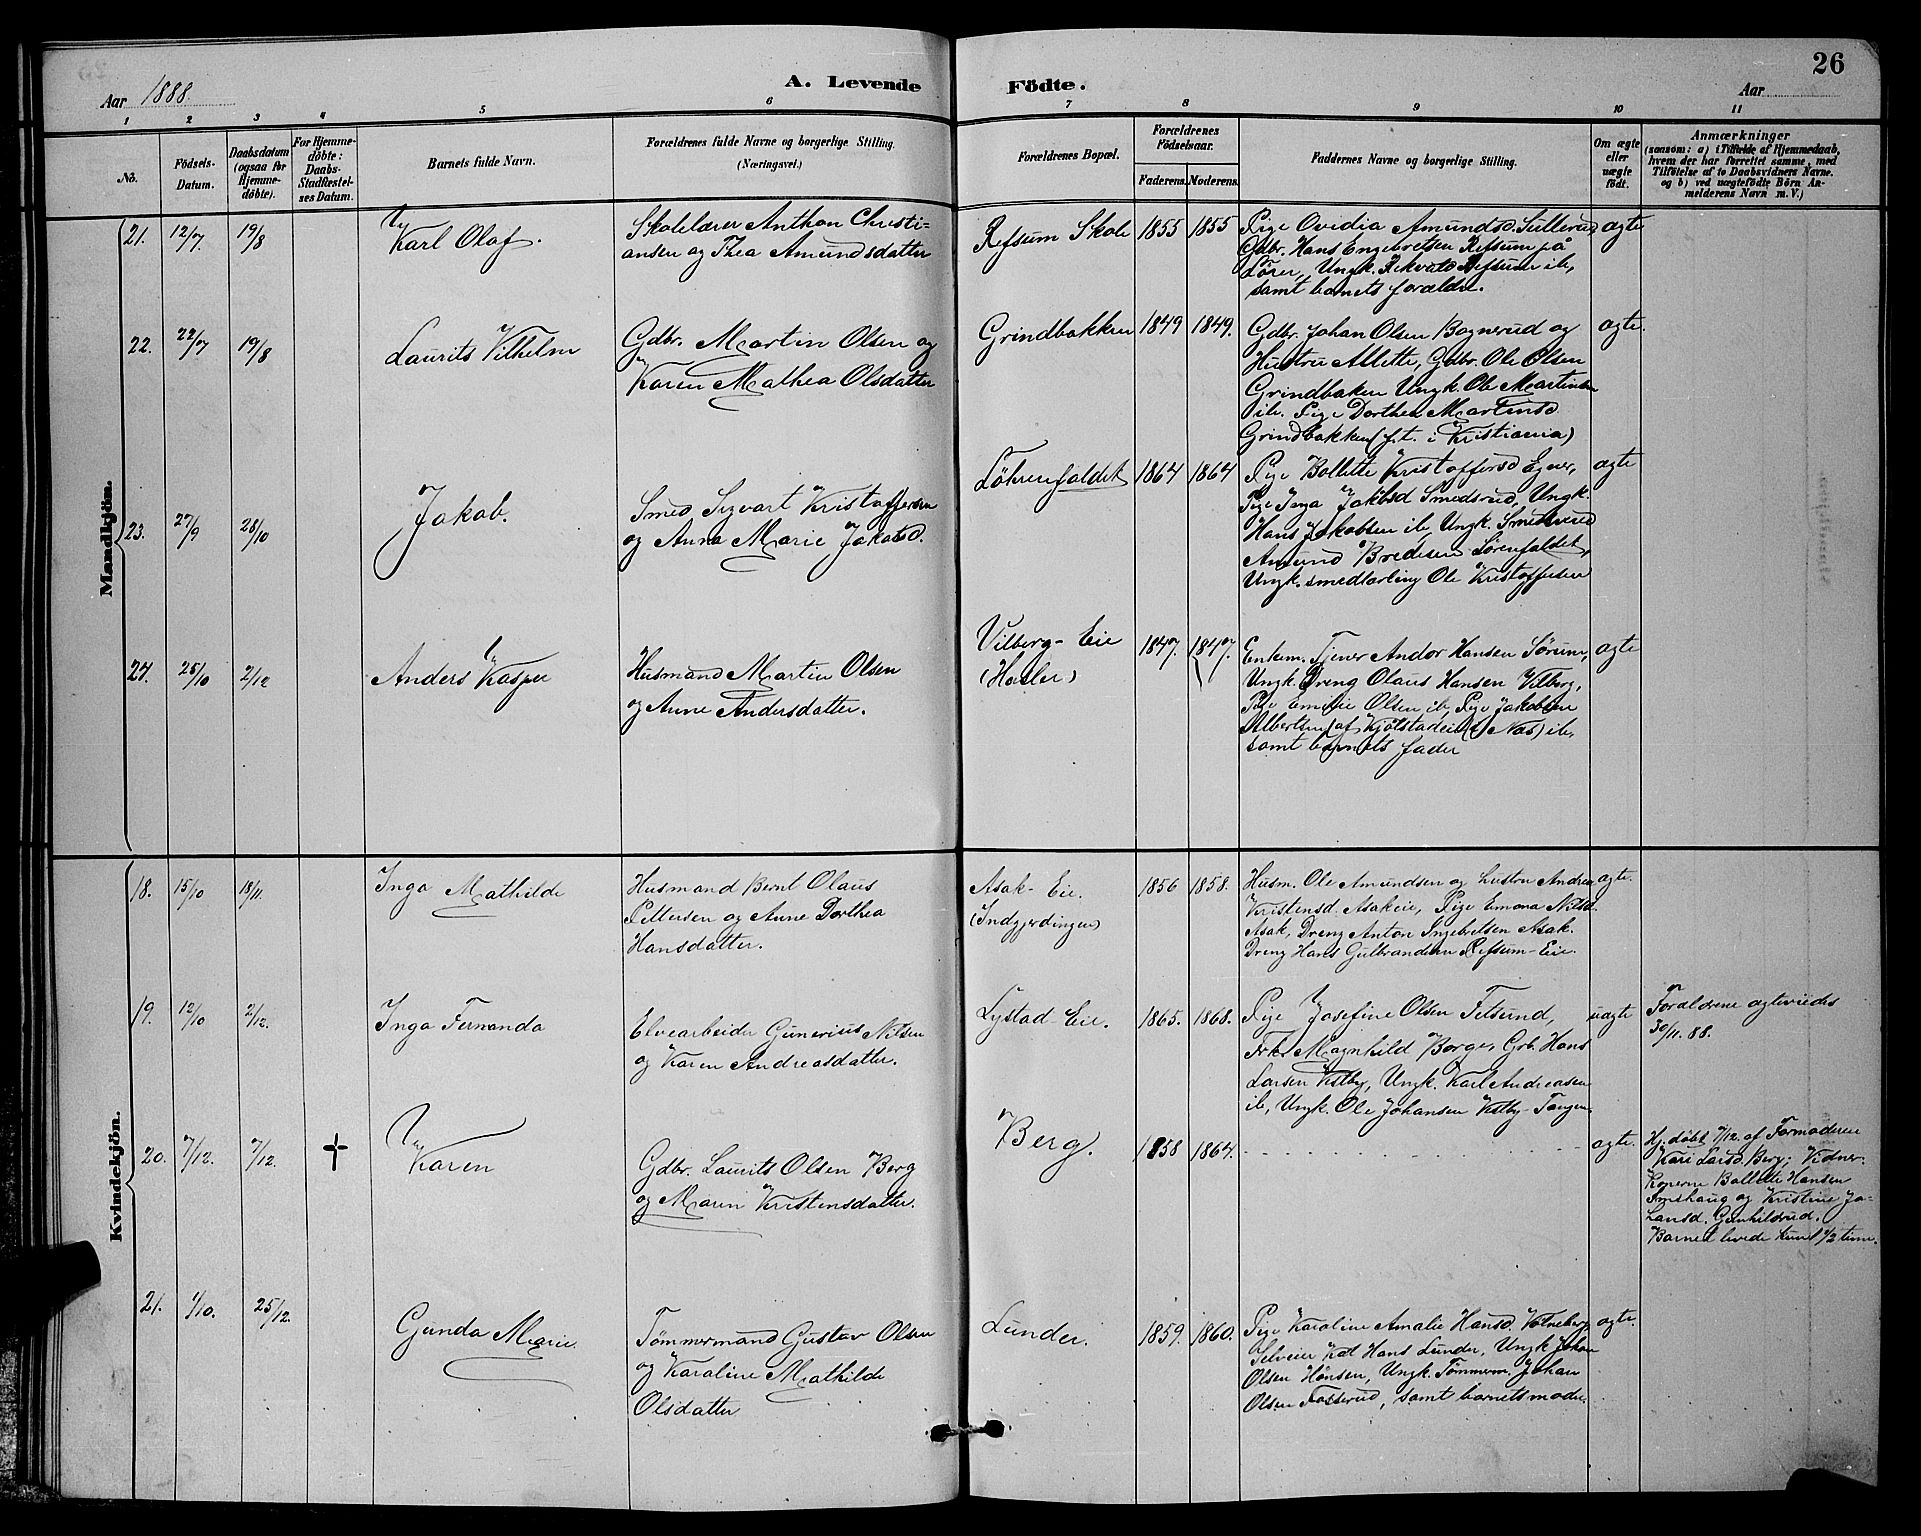 26
Aar 1888.
A. Levende
Födte.
Aar
1 2 3 4 5 6 7 8 9 10 11
No.
Födsels-
Datum.
Daabsdatum
(ogsaa for
Hjemme-
döbte).
For Hjemme-
döbte:
Daabs-
Stadfæstel-
ses Datum.
Barnets fulde Navn.
Forældrenes fulde Navne og borgerlige Stilling.
(Næringsvei.)
Forældrenes Bopæl.
Forældrenes
Födselsaar.
Faderens. Moderens.
Faddernes Navne og borgerlige Stilling.
Om ægte
eller
uægte
födt.
Anmærkninger
(saasom: a) i Tilfælde af Hjemmedaab,
hvem der har forrettet samme, med
Tilföielse af to Daabsvidners Navne.
og b) ved uægtefödte Börn An-
melderens Navn m. V.)
Mandkjön.
21. 12/7 19/8
Karl Olaf.
Skolelærer Anthon Christi-
ansen og Thea Amundsdatter
Refsum Skole 1855 1855
Pige Ovidia Amundsd. Sullerud
Gdbr. Hans Engebretsen Refsum på
Lörer, Ungk. Refsum ib,
samt barnets forældre.
ægte
22. 22/7 19/8
Laurits Vilhelm
Gdbr. Martin Olsen og
Karen Mathea Olsdatter
Grindbakken 1849 1849.
Gdbr. Johan Olsen Bognerud og
Hustru Allette, Gdbr. Ole Olsen
Grindbaken Ungk. Ole Martinsen
ib. Pige Dorthea Martinsd.
Grindbakken (f.t. i Kristiania)
ægte.
23. 27/9 28/10
Jakob.
Smed Sigvart Kristoffersen
og Anna Marie Jakobsd.
Löhrenfaldet 1864 1864
Pige Bollette Kristoffersd Egner,
Pige Inga Jakobsd Smedsrud, Ungk.
Hans Jakobsen ib, Ungk. Smedsvend
Amund Bredesen Lörenfaldet,
Ungk. smedlærling Ole Kristoffersen
ægte
24. 25/10 2/12
Anders Kasper
Husmand Martin Olsen
og Anne Andersdatter.
Vilberg-Eie
(Hasler)
1847. 1847.
Enkem. Tjener Andor Hansen Sörum,
Ungk. Dreng Olaus Hansen Vilberg,
Pige Emilie Olsen ib, Pige Jakobine
Albertsen (af Kjölstadeie (i Næs) ib,
samt barnets fader
ægte
Kvindekjön.
18. 15/10 18/11.
Inga Mathilde
Husmand Bernt Olaus
Pettersen og Anne Dorthea
Hansdatter.
Asak-Eie.
(Indgjerdingen)
1856 1858.
Husm. Ole Amundsen og hustru Andrea
Kristensd. Asakeie, Pige Emma Nilsd.
Asak, Dreng Anton Ingebretsen Asak.
Dreng Hans Gulbrandsen Refsum-Eie.
ægte.
19. 12/10 2/12.
Inga Fernanda
Elvearbeider Gunerius Nilsen
og Karen Andreasdatter.
Lystad-Eie. 1865. 1868.
Pige Josefine Olsen Fetsund,
Frk. Magnhild Borge, Grb. Hans
Larsen Vestby, Ungk. Karl Andreasen
ib, Ungk. Ole Johansen Vestby-Tangen
uægte
Forældrene ægteviedes
30/11. 88.
20. 7/12. 7/12. †
Karen
Gdbr. Laurits Olsen Berg
og Maren Kristensdatter.
Berg. 1858 1864.
ægte.
Hj.döbt 7/12. af Formoderen
Kari Larsd. Berg; Vidner:
Konerne Bollette Hansen
Smshaug og Kristine Jo-
hansd. Gunhildrud.
Barnet levede kun 1 1/2 time.
21. 1/10. 25/12.
Gunda Marie
Tömmermand Gustav Olsen
og Karoline Mathilde
Olsdatter
Lunder. 1859. 1860.
Pige Karoline Amalie Hansd Volneberg
Selveier Karl Hans Lunder, Ungk Johan
Olsen Hönsen, Ungk. Tömmerm. Johan
Olsen Fosserud, samt barnets moder.
ægte.